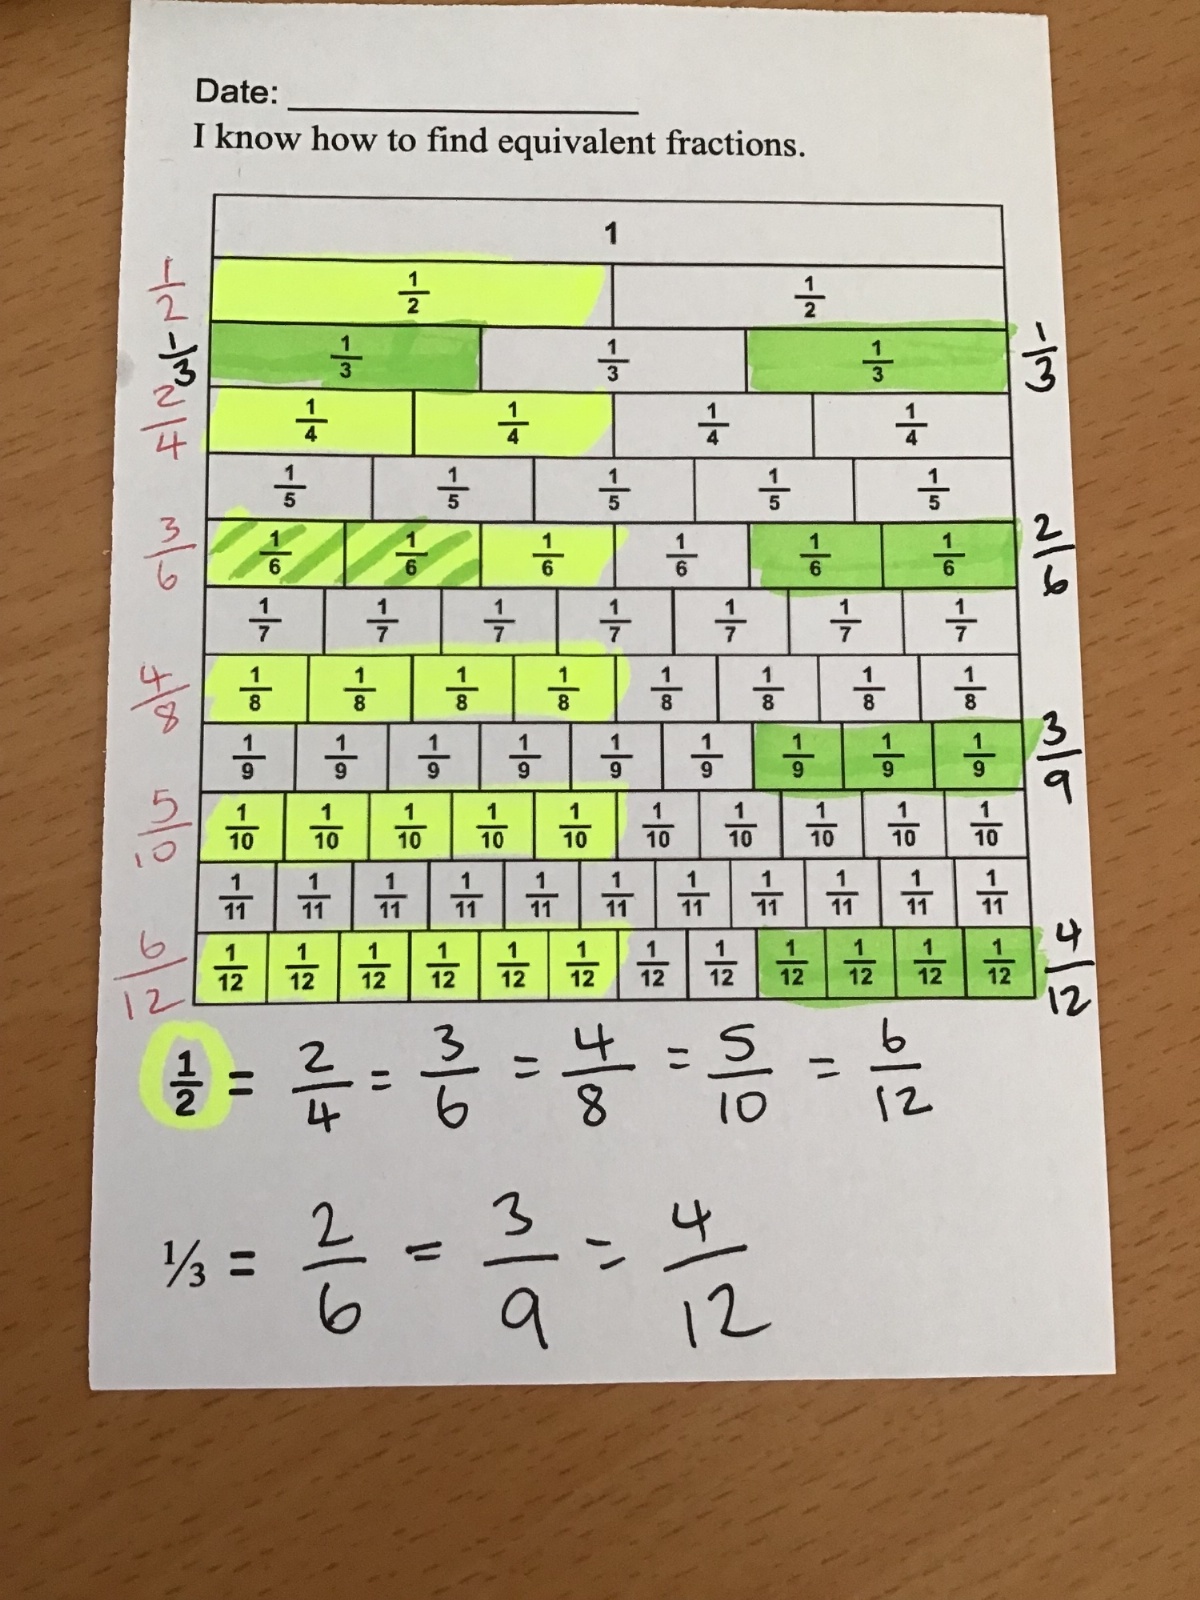 Date: ____________
I know how to find equivalent fractions.
1
1/2 1/2 1/2
1/3 1/3 1/3 1/3 1/3
2/4 1/4 1/4 1/4 1/4
1/5 1/5 1/5 1/5 1/5
3/6 1/6 1/6 1/6 1/6 1/6 1/6 2/6
1/7 1/7 1/7 1/7 1/7 1/7 1/7
4/8 1/8 1/8 1/8 1/8 1/8 1/8 1/8 1/8
1/9 1/9 1/9 1/9 1/9 1/9 1/9 1/9 1/9 3/9
5/10 1/10 1/10 1/10 1/10 1/10 1/10 1/10 1/10 1/10 1/10
1/11 1/11 1/11 1/11 1/11 1/11 1/11 1/11 1/11 1/11 1/11
6/12 1/12 1/12 1/12 1/12 1/12 1/12 1/12 1/12 1/12 1/12 1/12 1/12 4/12
1/2 = 2/4 = 3/6 = 4/8 = 5/10 = 6/12
1/3 = 2/6 = 3/9 = 4/12